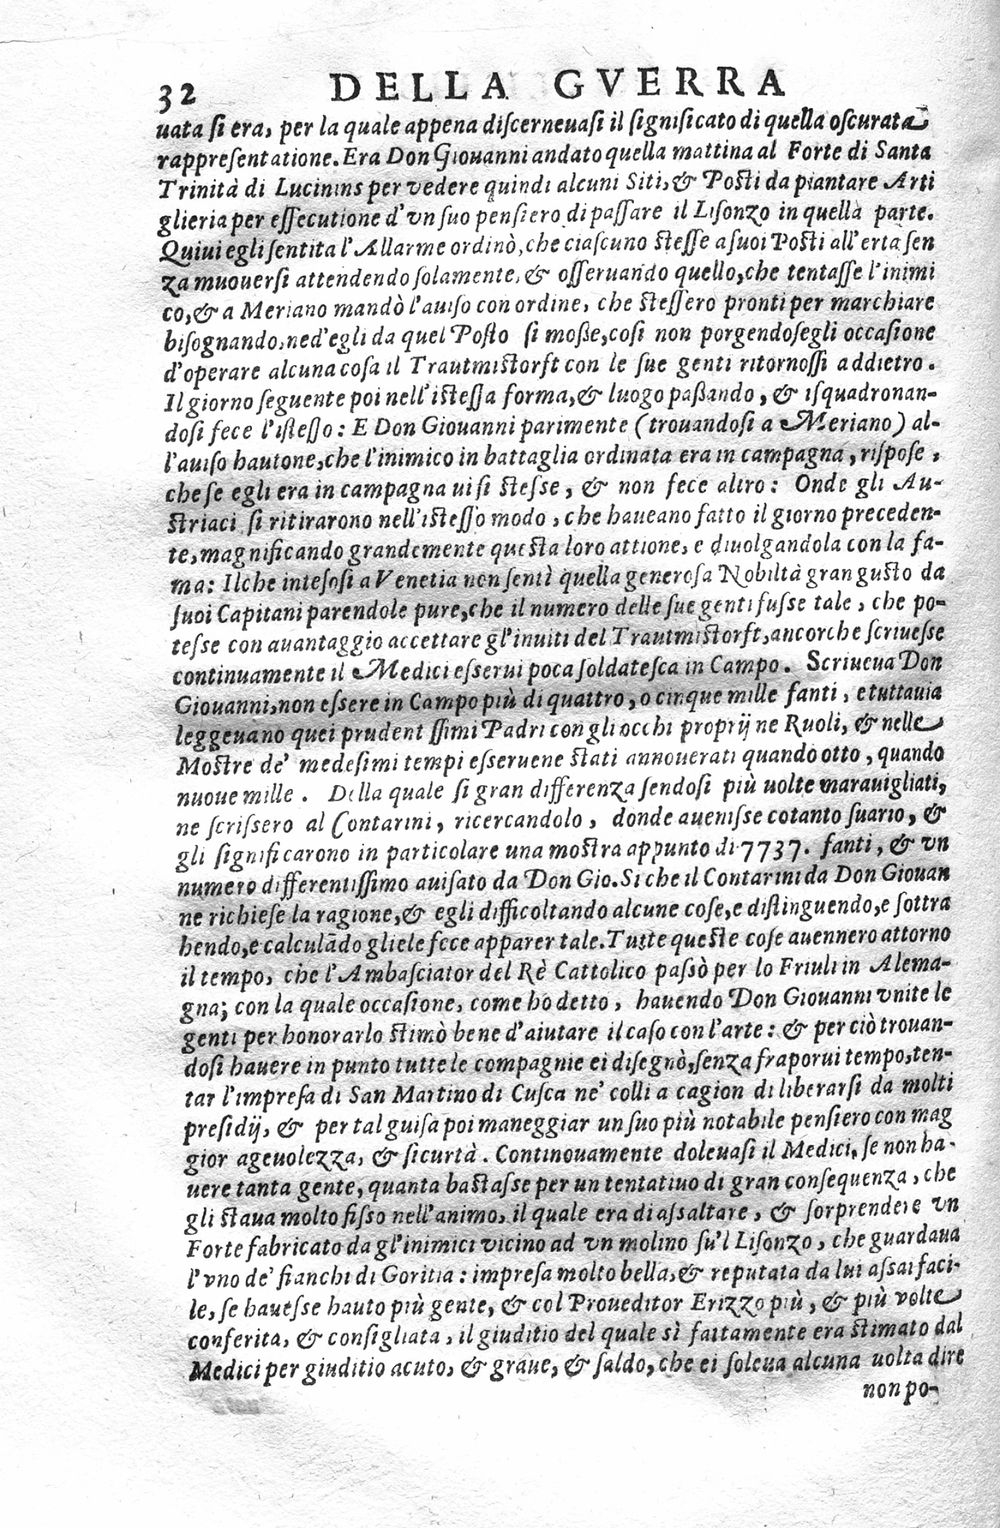 32 DELLA GVERRA
uata ſi era, per la quale appena diſcerneuaſi il ſignificato di quella oſcurata
rappreſentatione. Era Don Giouanni andato quella mattina al Forte di Santa
Trinità di Lucinins per vedere quindi alcuni Siti, & Poſti da piantare Arti
glieria per eſſecutione d'vn ſuo penſiero di paſſare il Liſonzo in quella parte.
Quiui egli ſentita l'Allarme ordinò, che ciaſcuno ſteſſe a ſuoi Poſti all'erta ſen
za muouerſi attendendo ſolamente, & oſſeruando quello, che tentaſſe l'inimi
co, & a Meriano mandò l'auiſo con ordine, che ſteſſero pronti per marchiare
biſognando, ned'egli da quel Poſto ſi moße, coſi non porgendoſegli occaſione
d'operare alcuna coſa il Trautmiſtorft con le ſue genti ritornoſſi addietro.
Il giorno ſeguente poi nell'iſteſſa forma, & luogo paßando, & iſquadronan-
doſi fece l'iſteſſo: E Don Giouanni parimente (trouandoſi a Meriano) al-
l'auiſo hautone, che l'inimico in battaglia ordinata era in campagna, riſpoſe,
che ſe egli era in campagna ui ſi ſteſſe, & non fece altro: Onde gli Au-
ſtriaci ſi ritirarono nell'iſteſſo modo, che haueano fatto il giorno preceden-
te, magnificando grandemente queſta loro attione, e diuolgandola con la fa-
ma: Il che inteſoſi a Venetia non ſentì quella generoſa Nobiltà gran guſto da
ſuoi Capitani parendole pure, che il numero delle ſue genti fuſſe tale, che po-
teſſe con auantaggio accettare gl'inuiti del Trautmiſtorft, ancorche ſcriueſſe
continuamente il Medici eſſerui poca ſoldateſca in Campo. Scriueua Don
Giouanni, non eſſere in Campo più di quattro, o cinque mille fanti, e tuttauia
leggeuano quei prudent ſſimi Padri con gli occhi proprij ne Ruoli, & nelle
Moſtre de' medeſimi tempi eſſeruene ſtati annouerati quando otto, quando
nuoue mille. Della quale ſi gran differenza ſendoſi più uolte marauigliati,
ne ſcriſſero al Contarini, ricercandolo, donde aueniſſe cotanto ſuario, &
gli ſignificarono in particolare una moſtra appunto di 7737. fanti, & vn
numero differentiſſimo auiſato da Don Gio. Si che il Contarini da Don Giouan
ne richieſe la ragione, & egli difficoltando alcune coſe, e diſtinguendo, e ſottra
hendo, e calculādo gliele fece apparer tale. Tutte queſte coſe auennero attorno
il tempo, che l'Ambaſciator del Rè Cattolico paſsò per lo Friuli in Alema-
gna; con la quale occaſione, come ho detto, hauendo Don Giouanni vnite le
genti per honorarlo ſtimò bene d'aiutare il caſo con l'arte: & per ciò trouan-
doſi hauere in punto tutte le compagnie ei diſegnò, ſenza fraporui tempo, ten-
tar l'impreſa di San Martino di Cuſca ne' colli a cagion di liberarſi da molti
preſidij, & per tal guiſa poi maneggiar un ſuo più notabile penſiero con mag
gior ageuolezza, & ſicurtà. Continouamente doleuaſi il Medici, ſe non ha-
uere tanta gente, quanta baſtaſſe per un tentatiuo di gran conſequenza, che
gli ſtaua molto fiſſo nell'animo, il quale era di aſſaltare, & ſorprendere vn
Forte fabricato da gl'inimici vicino ad vn molino ſu'l Liſonzo, che guardaua
l'vno de' fianchi di Goritia: impreſa molto bella, & reputata da lui aſſai faci-
le, ſe haueſſe hauto più gente, & col Proueditor Erizzo più, & più volte
conferita, & conſigliata, il giuditio del quale sì fattamente era ſtimato dal
Medici per giuditio acuto, & graue, & ſaldo, che ei ſoleua alcuna uolta dire
non po-